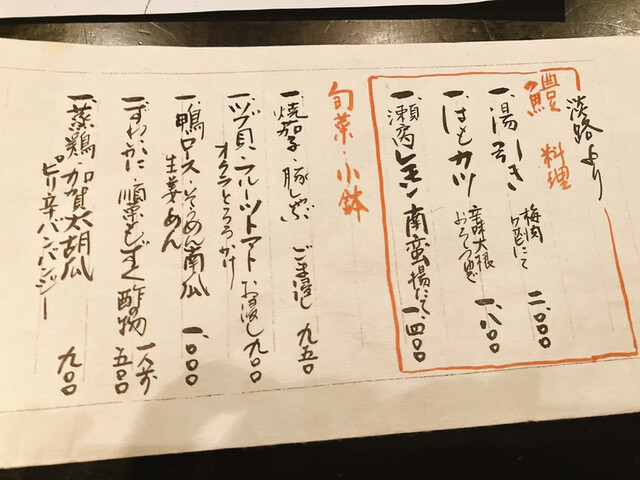 淡路より
鱧料理
一、湯引き 梅肉 にて 二、000
一、はもカツ 辛味大根 おろしつゆ 一、八00
一、瀬戸内レモン 南蛮揚にて 一、四00
旬菜・小鉢
一、焼茄子・豚しゃぶ ごま浸し 九五0
一、ツブ貝・フルーツトマト お浸し 九00
オクラとろろかけ
一、鴨ロース・そうめん南瓜 一、000
生姜あん
一、ずわいかに 順菜もずく 酢の物 一人前 五00
一、蒸鶏 加賀太胡瓜 九00
ピリ辛バンバンジー